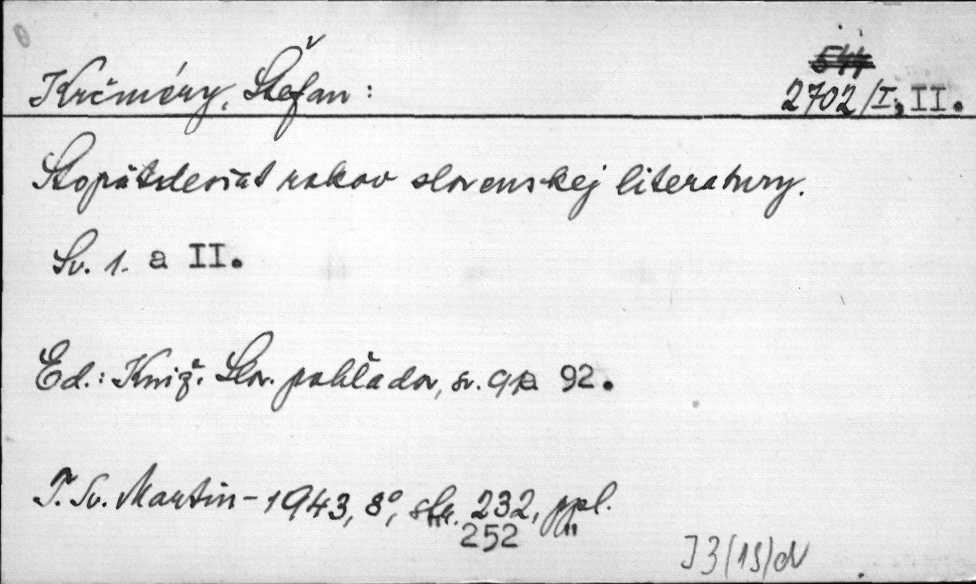 544
Krčméry, Štefan: 2702/I., II.
Stopäťdesiat rokov slovenskej literatury.
Sv. 1. a II.
Ed.: Kniž. Slov. pohľadov, sv. 9 a 92.
T. Sv. Martin - 1943, 8°, str. 232, ppl.
" 252 "